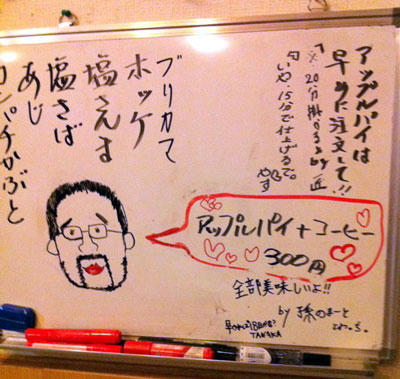 アップルパイは
早めに注文して!!
20分掛かる by 匠
匂いや、15分で仕上げるで。
やす
ブリカマ
ホッケ
塩さんま
塩さば
あじ
カンパチかぶと
アップルパイ+コーヒー
300円
全部美味しいよ!!
by 孫のまーと
TANAKA